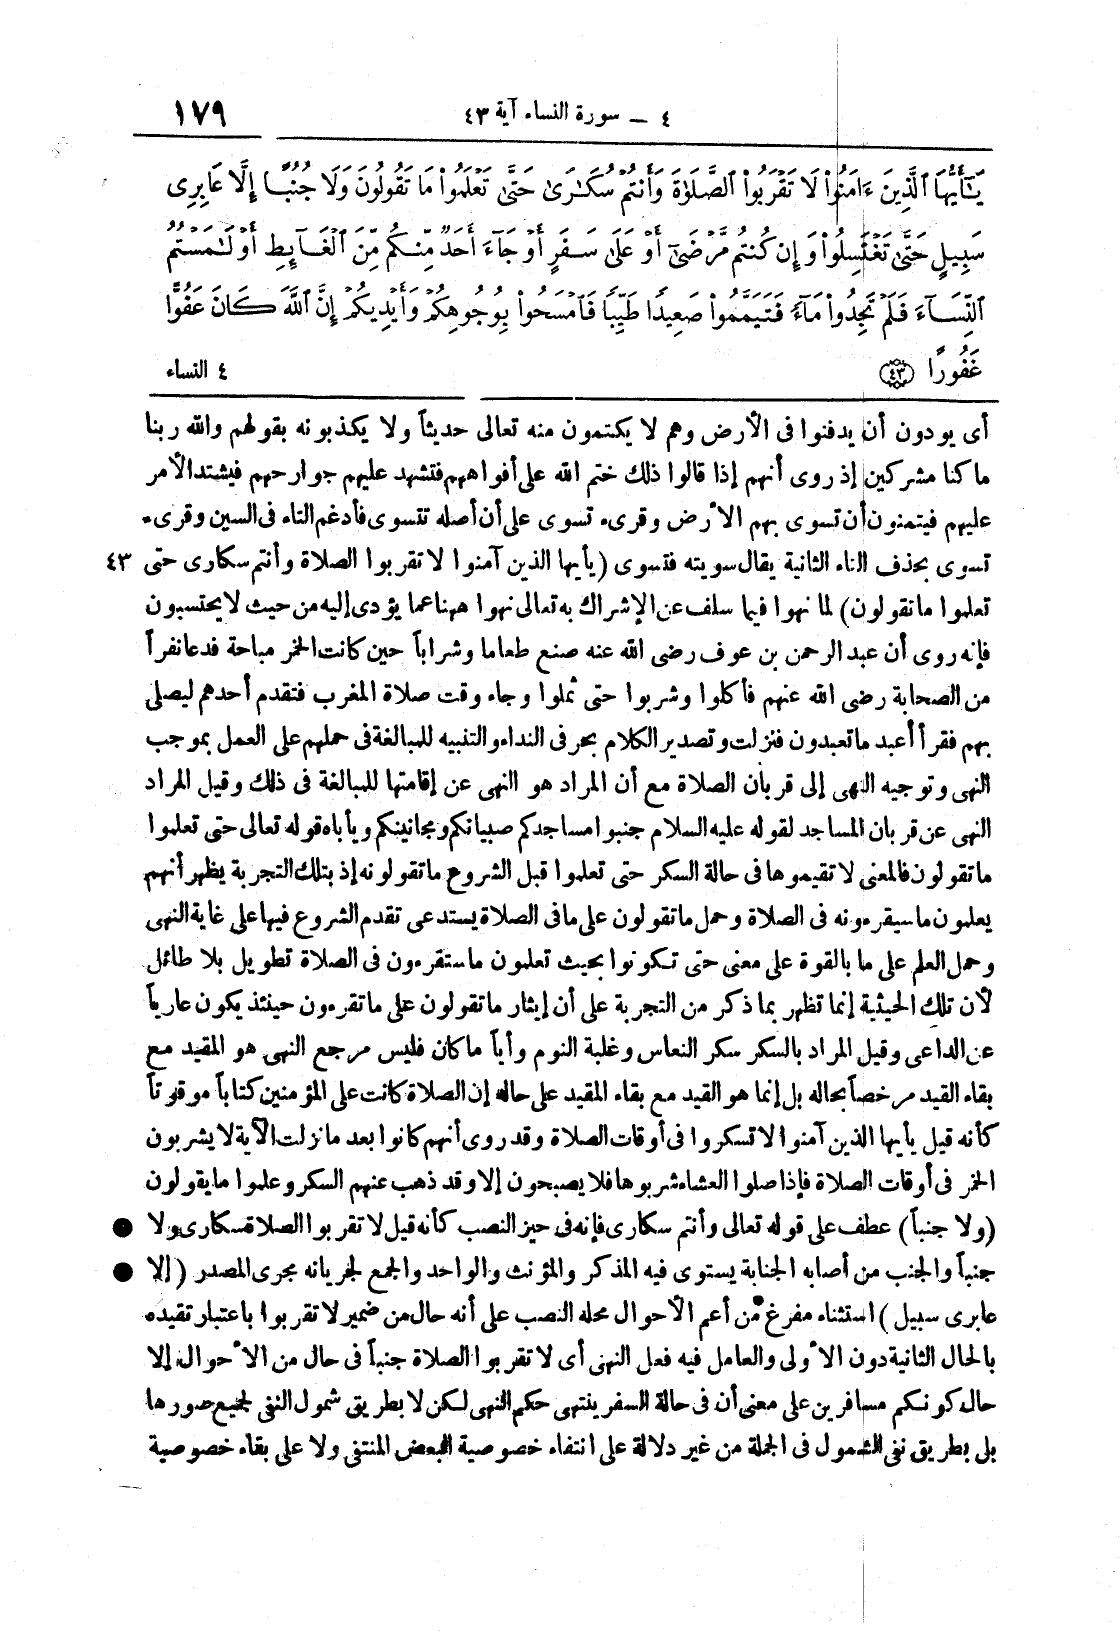 ٤ – سورة النساء آية ٤٣
١٧٩
يَـٰٓأَيُّهَا ٱلَّذِينَ ءَامَنُوا۟ لَا تَقْرَبُوا۟ ٱلصَّلَوٰةَ وَأَنتُمْ سُكَـٰرَىٰ حَتَّىٰ تَعْلَمُوا۟ مَا تَقُولُونَ وَلَا جُنُبًا إِلَّا عَابِرِى
سَبِيلٍ حَتَّىٰ تَغْتَسِلُوا۟ وَإِن كُنتُم مَّرْضَىٰٓ أَوْ عَلَىٰ سَفَرٍ أَوْ جَآءَ أَحَدٌ مِّنكُم مِّنَ ٱلْغَآئِطِ أَوْ لَـٰمَسْتُمُ
ٱلنِّسَآءَ فَلَمْ تَجِدُوا۟ مَآءً فَتَيَمَّمُوا۟ صَعِيدًا طَيِّبًا فَٱمْسَحُوا۟ بِوُجُوهِكُمْ وَأَيْدِيكُمْ إِنَّ ٱللَّهَ كَانَ عَفُوًّا
غَفُورًا ﴿٤٣﴾
٤ النساء
أى يودون أن يدفنوا فى الأرض وهم لا يكتمون منه تعالى حديثاً ولا يكذبونه بقولهم والله ربنا
ما كنا مشركين إذ روى أنهم إذا قالوا ذلك ختم الله على أفواههم فتشهد عليهم جوارحهم فيشتد الأمر
عليهم فيتمنون أن تسوى بهم الأرض وقرىء تسوى على أن أصله تتسوى فأدغم التاء فى السين وقرىء
تسوى بحذف التاء الثانية يقال سويته فتسوى (يأيها الذين آمنوا لا تقربوا الصلاة وأنتم سكارى حتى ٤٣
تعلموا ما تقولون) لما نهوا فيما سلف عن الإشراك به تعالى نهوا ههنا عما يؤدى إليه من حيث لا يحتسبون
فإنه روى أن عبد الرحمن بن عوف رضى الله عنه صنع طعاما وشراباً حين كانت الخمر مباحة فدعا نفراً
من الصحابة رضى الله عنهم فأكلوا وشربوا حتى ثملوا وجاء وقت صلاة المغرب فتقدم أحدهم ليصلى
بهم فقرأ أعبد ما تعبدون فنزلت وتصدير الكلام بحرفى النداء والتنبيه للمبالغة فى حملهم على العمل بموجب
النهى وتوجيه النهى إلى قربان الصلاة مع أن المراد هو النهى عن إقامتها للمبالغة فى ذلك وقيل المراد
النهى عن قربان المساجد لقوله عليه السلام جنبوا مساجدكم صبيانكم ومجانينكم ويأباه قوله تعالى حتى تعلموا
ما تقولون فالمعنى لا تقيموها فى حالة السكر حتى تعلموا قبل الشروع ما تقولونه إذ بتلك التجربة يظهر أنهم
يعلمون ما سيقرءونه فى الصلاة وحمل ما تقولون على ما فى الصلاة يستدعى تقدم الشروع فيها على غاية النهى
وحمل العلم على ما بالقوة على معنى حتى تكونوا بحيث تعلمون ما ستقرءون فى الصلاة تطويل بلا طائل
لأن تلك الحيثية إنما تظهر بما ذكر من التجربة على أن إيثار ما تقولون على ما تقرءون حينئذ يكون عارياً
عن الداعى وقيل المراد بالسكر سكر النعاس وغلبة النوم وأياً ما كان فليس مرجع النهى هو المقيد مع
بقاء القيد مرخصاً بحاله بل إنما هو القيد مع بقاء المقيد على حاله إن الصلاة كانت على المؤمنين كتاباً موقوتاً
كأنه قيل يأيها الذين آمنوا لا تسكروا فى أوقات الصلاة وقد روى أنهم كانوا بعد ما نزلت الآية لا يشربون
الخمر فى أوقات الصلاة فإذا صلوا العشاء شربوها فلا يصبحون إلا وقد ذهب عنهم السكر وعلموا ما يقولون
(ولا جنباً) عطف على قوله تعالى وأنتم سكارى فإنه فى حيز النصب كأنه قيل لا تقربوا الصلاة سكارى ولا ●
جنباً والجنب من أصابه الجنابة يستوى فيه المذكر والمؤنث والواحد والجمع لجريانه مجرى المصدر (إلا ●
عابرى سبيل) استثناء مفرغ من أعم الأحوال محله النصب على أنه حال من ضمير لا تقربوا باعتبار تقيده
بالحال الثانية دون الأولى والعامل فيه فعل النهى أى لا تقربوا الصلاة جنباً فى حال من الأحوال إلا
حال كونكم مسافرين على معنى أن فى حالة السفر ينتهى حكم النهى لكن لا بطريق شمول النفى لجميع صورها
بل بطريق نفى الشمول فى الجملة من غير دلالة على انتفاء خصوصية البعض المنتفى ولا على بقاء خصوصية